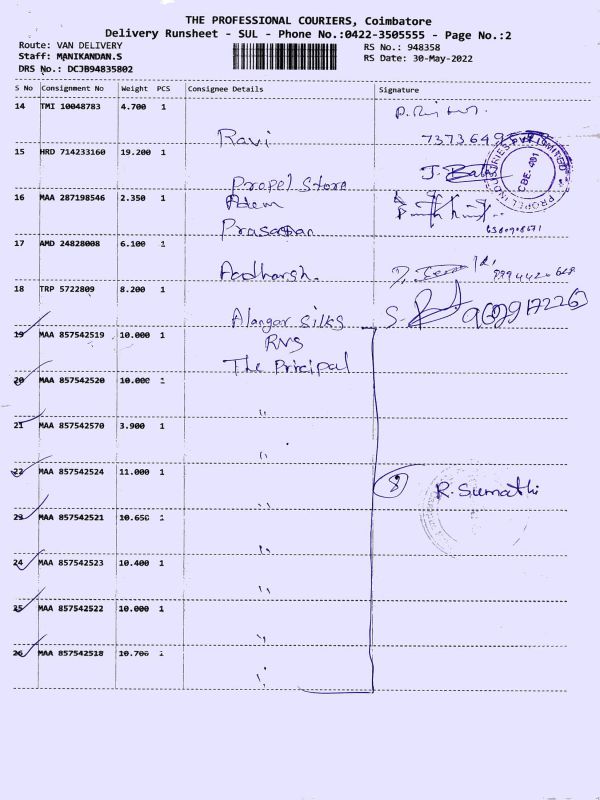 THE PROFESSIONAL COURIERS, Coimbatore
Delivery Runsheet - SUL - Phone No.:0422-3505555 - Page No.:2
Route: VAN DELIVERY
RS No.: 948358
Staff: MANIKANDAN.S
RS Date: 30-May-2022
DRS No.: DCJB94835802
S No Consignment No Weight PCS Consignee Details Signature
14 TMI 10048783 4.700 1
Ravi
15 HRD 714233160 19.200 1
Propel Store
16 MAA 287198546 2.350 1
17 AMD 24828008 6.100 1
Aadharsh.
9994420
18 TRP 5722809 8.200 1
Alangar Silks
19 MAA 857542519 10.000 1
RVS
The Principal
20 MAA 857542520 10.000 1
"
21 MAA 857542570 3.900 1
"
22 MAA 857542524 11.000 1
8 R. Sumathi
"
23 MAA 857542521 10.650 1
"
24 MAA 857542523 10.400 1
"
25 MAA 857542522 10.000 1
"
26 MAA 857542518 10.700 1
"
PROPEL INDUSTRIES PVT LIMITED
CBE. 401